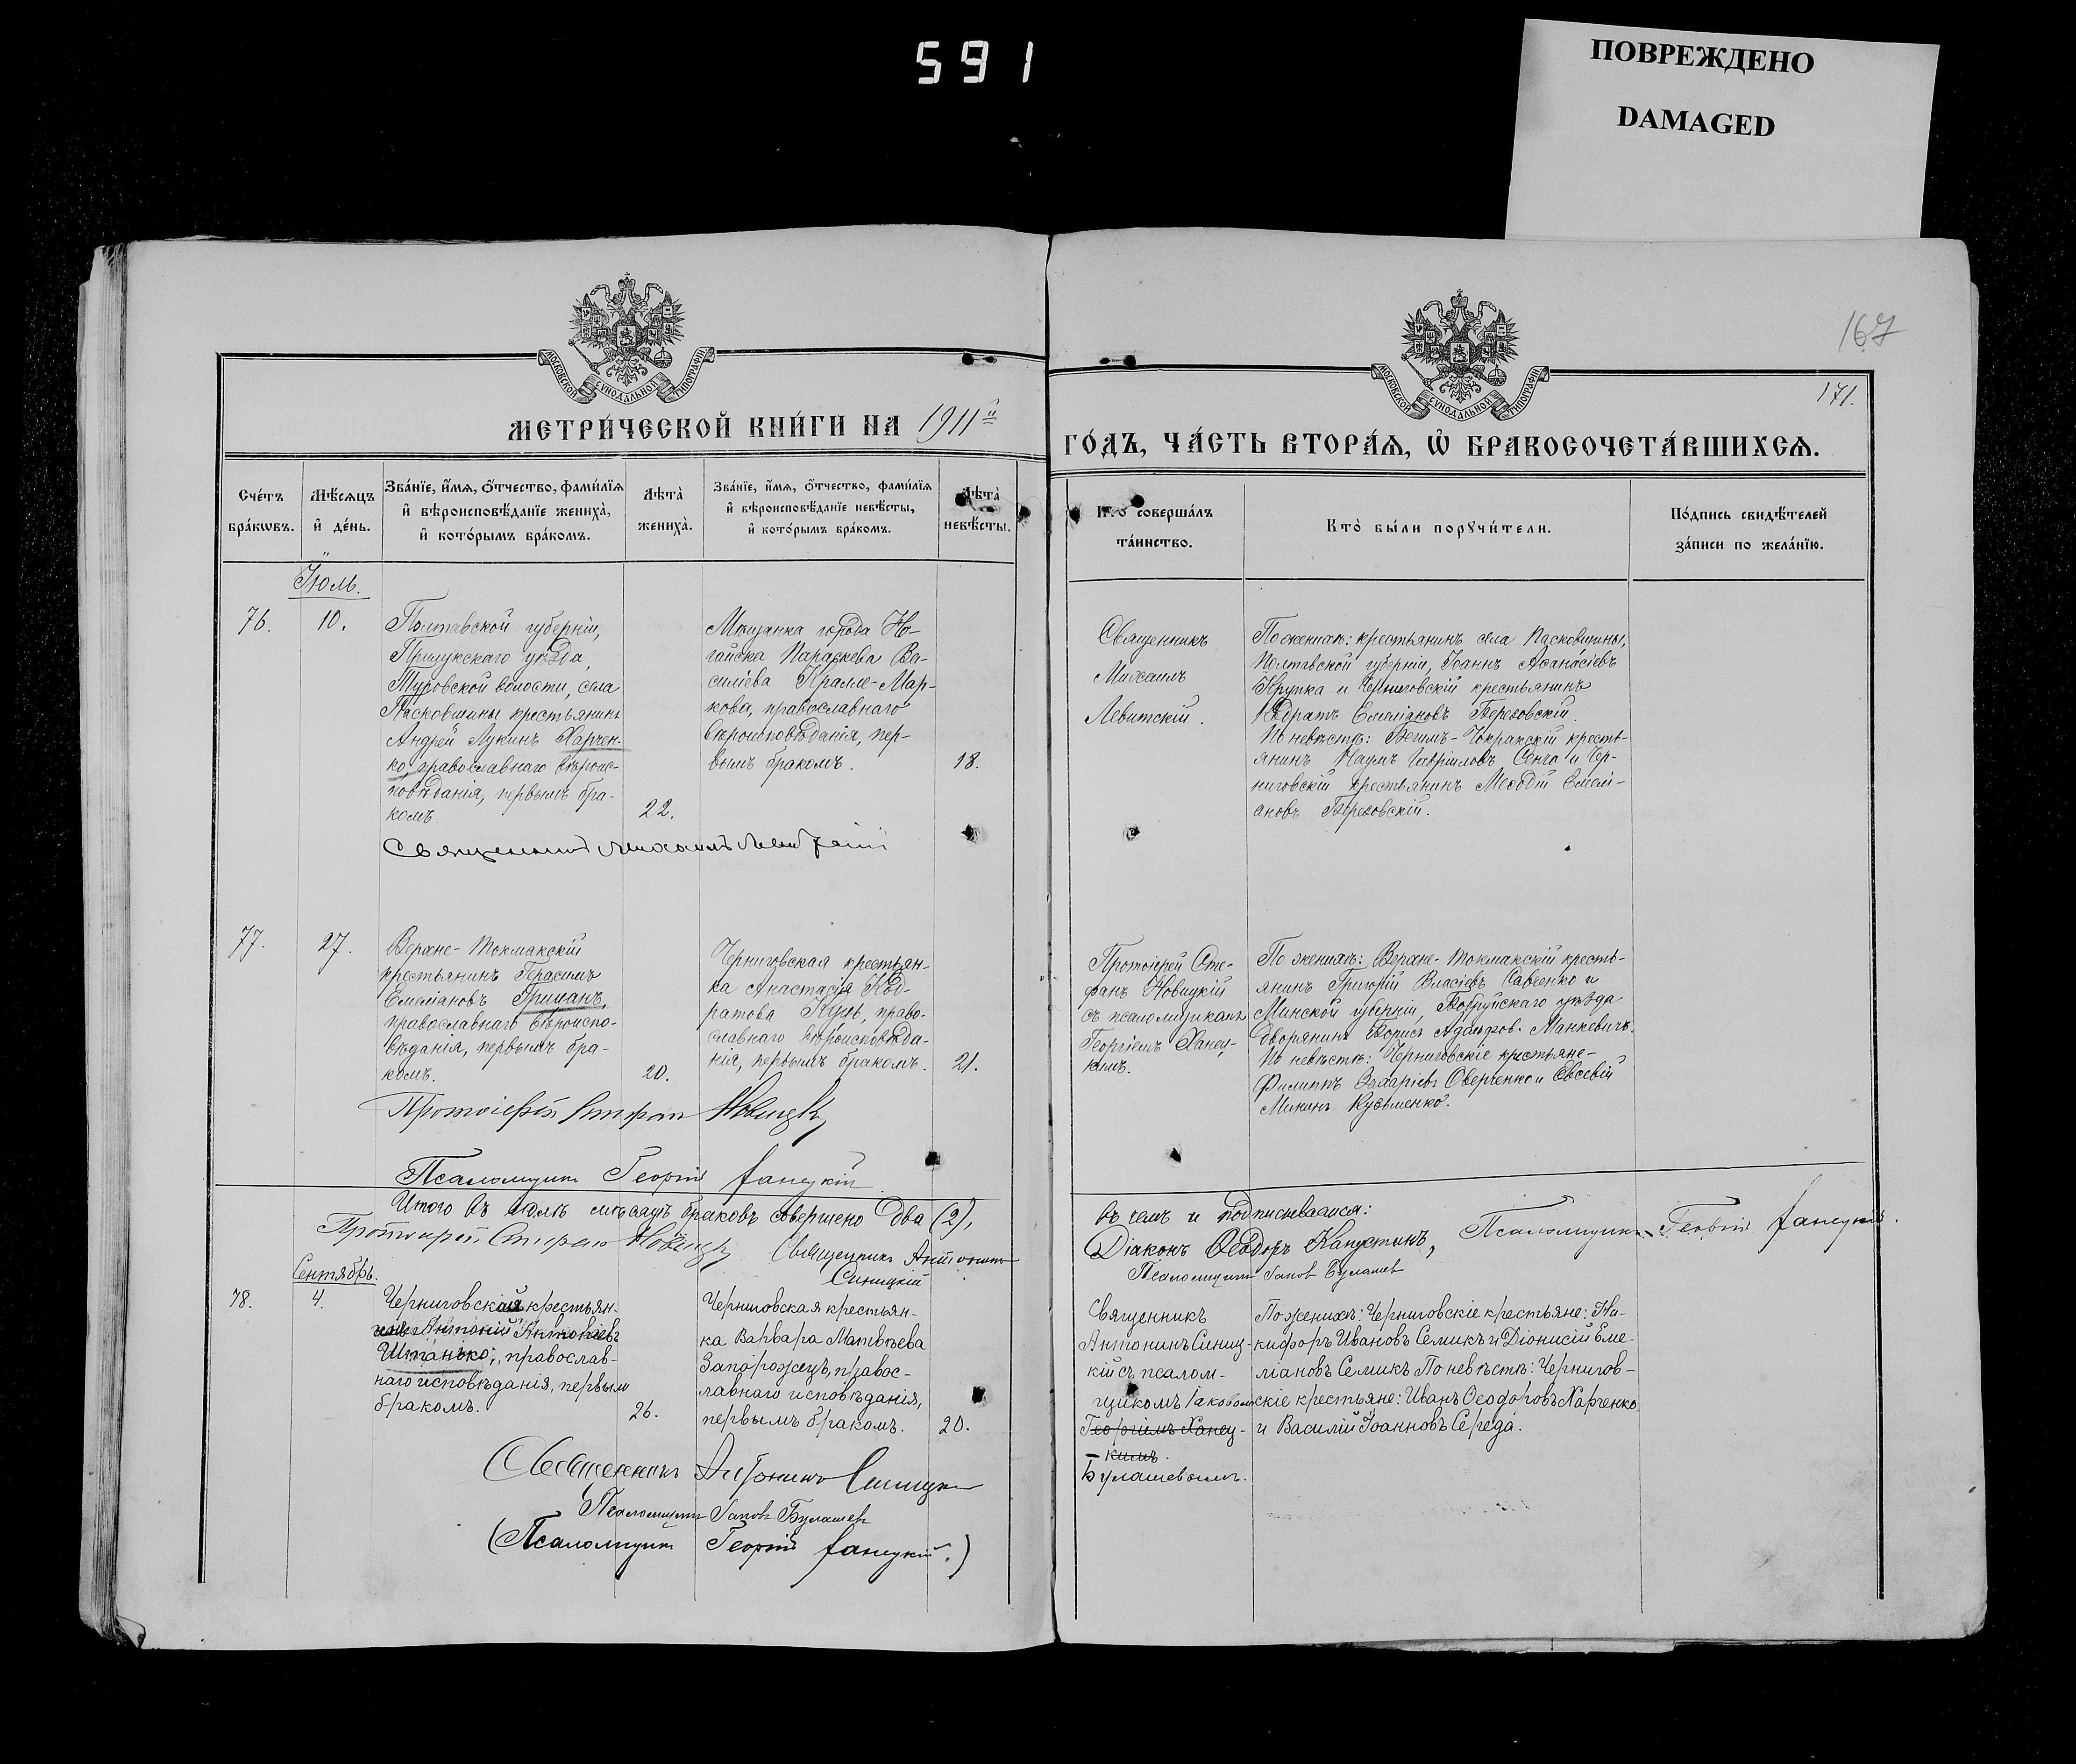 591
ПОВРЕЖДЕНО
DAMAGED
167
171.
МОСКОВСКОЙ СѴНОДАЛЬНОЙ ТИПОГРАФІИ
МОСКОВСКОЙ СѴНОДАЛЬНОЙ ТИПОГРАФІИ
МЕТРИ́ЧЕСКОЙ КНИ́ГИ НА 1911й
ГО́ДЪ, ЧА́СТЬ ВТОРА́Ѧ, Ѡ҆ БРАКОСОЧЕТА́ВШИХСѦ.
Сче́тъ бра́кѡвъ.
Мѣ́сяцъ и҆ де́нь.
Зва́нїе, и҆́мѧ, ѻ҆́тчество, фами́лїѧ и҆ вѣроисповѣ́данїе жениха̀, и҆ кото́рымъ бра́комъ.
Лѣ́та̀ жениха̀.
Зва́нїе, и҆́мѧ, ѻ҆́тчество, фами́лїѧ и҆ вѣроисповѣ́данїе невѣ́сты, и҆ кото́рымъ бра́комъ.
Лѣ́та̀ невѣ́сты.
Кто̀ соверша́лъ та́инство.
Кто̀ бы́ли порꙋчи́тели.
По́дпись свидѣ́телей за́писи по жела́нїю.
Іюль.
76.
10.
Полтавской губерніи,
Прилукскаго уѣзда,
Туровской волости, села
Пасковщины крестьянинъ
Андрей Лукинъ Харчен-
ко, православнаго вѣроис-
повѣданія, первымъ бра-
комъ.
22.
Мѣщанка города Но-
гайска Параскева Ва-
силіева Кралле-Мар-
кова, православнаго
вѣроисповѣданія, пер-
вымъ бракомъ.
18.
Священникъ
Михаилъ
Левитскій.
По женихѣ: крестьянинъ села Пасковщины,
Полтавской губерніи, Іоаннъ Аѳанасіевъ
Крупка и Черниговскій крестьянинъ
Кодратъ Емеліановъ Березовскій.
По невѣстѣ: Бегимъ-Чокракскій кресть-
янинъ Наумъ Гавріиловъ Сенго и Чер-
ниговскій крестьянинъ Меѳодій Емелі-
ановъ Березовскій.
Священникъ Михаилъ Левитскій
77.
27.
Верхне-Токмакскій
крестьянинъ Герасимъ
Емеліановъ Гриманъ,
православнаго вѣроиспо-
вѣданія, первымъ бра-
комъ.
20.
Черниговская крестьян-
ка Анастасія Код-
ратова Куць, право-
славнаго вѣроисповѣда-
нія, первымъ бракомъ.
21.
Протоіерей Сте-
фанъ Новицкій
съ псаломщикомъ
Георгіемъ Ханец-
кимъ.
По женихѣ: Верхне-Токмакскій кресть-
янинъ Григорій Власіевъ Савченко и
Минской губерніи, Бобруйскаго уѣзда
дворянинъ Борисъ Манкевичъ.
По невѣстѣ: Черниговскіе крестьяне-
Филиппъ Захаріевъ Оверченко и Евсевій
Мининъ Кузьменко.
Протоіерей Стефанъ Новицкій
Псаломщикъ Георгій Ханецкій
Итого въ іюлѣ мѣсяцѣ браковъ совершено два (2),
въ чемъ и подписываемся:
Протоіерей Стефанъ Новицкій Священникъ Антонинъ
Синицкій
Діаконъ Ѳеодоръ Капустинъ, Псаломщикъ Георгій Ханецкій.
Псаломщикъ Іаковъ Булашев
Сентябрь.
78.
4.
Черниговскій крестьян-
инъ Антоній Антоніевъ
Штанько, православ-
наго исповѣданія, первым
бракомъ.
26.
Черниговская крестьян-
ка Варвара Матвѣева
Запорожецъ, правос-
лавнаго исповѣданія,
первымъ бракомъ.
20.
Священникъ
Антонинъ Синиц-
кій съ псалом-
щикомъ Іаковом
Георгіемъ Ханец-
кимъ.
Булашевымъ.
По женихѣ: Черниговскіе крестьяне: Ни-
кифоръ Ивановъ Семикъ и Діонисій Еме-
ліановъ Семикъ По невѣстѣ: Чернигов-
скіе крестьяне: Иванъ Ѳеодоровъ Харченко
и Василій Іоанновъ Середа.
Священникъ Антонинъ Синицкій
Псаломщикъ Іаковъ Булашев
(Псаломщикъ Георгій Ханецкій.)